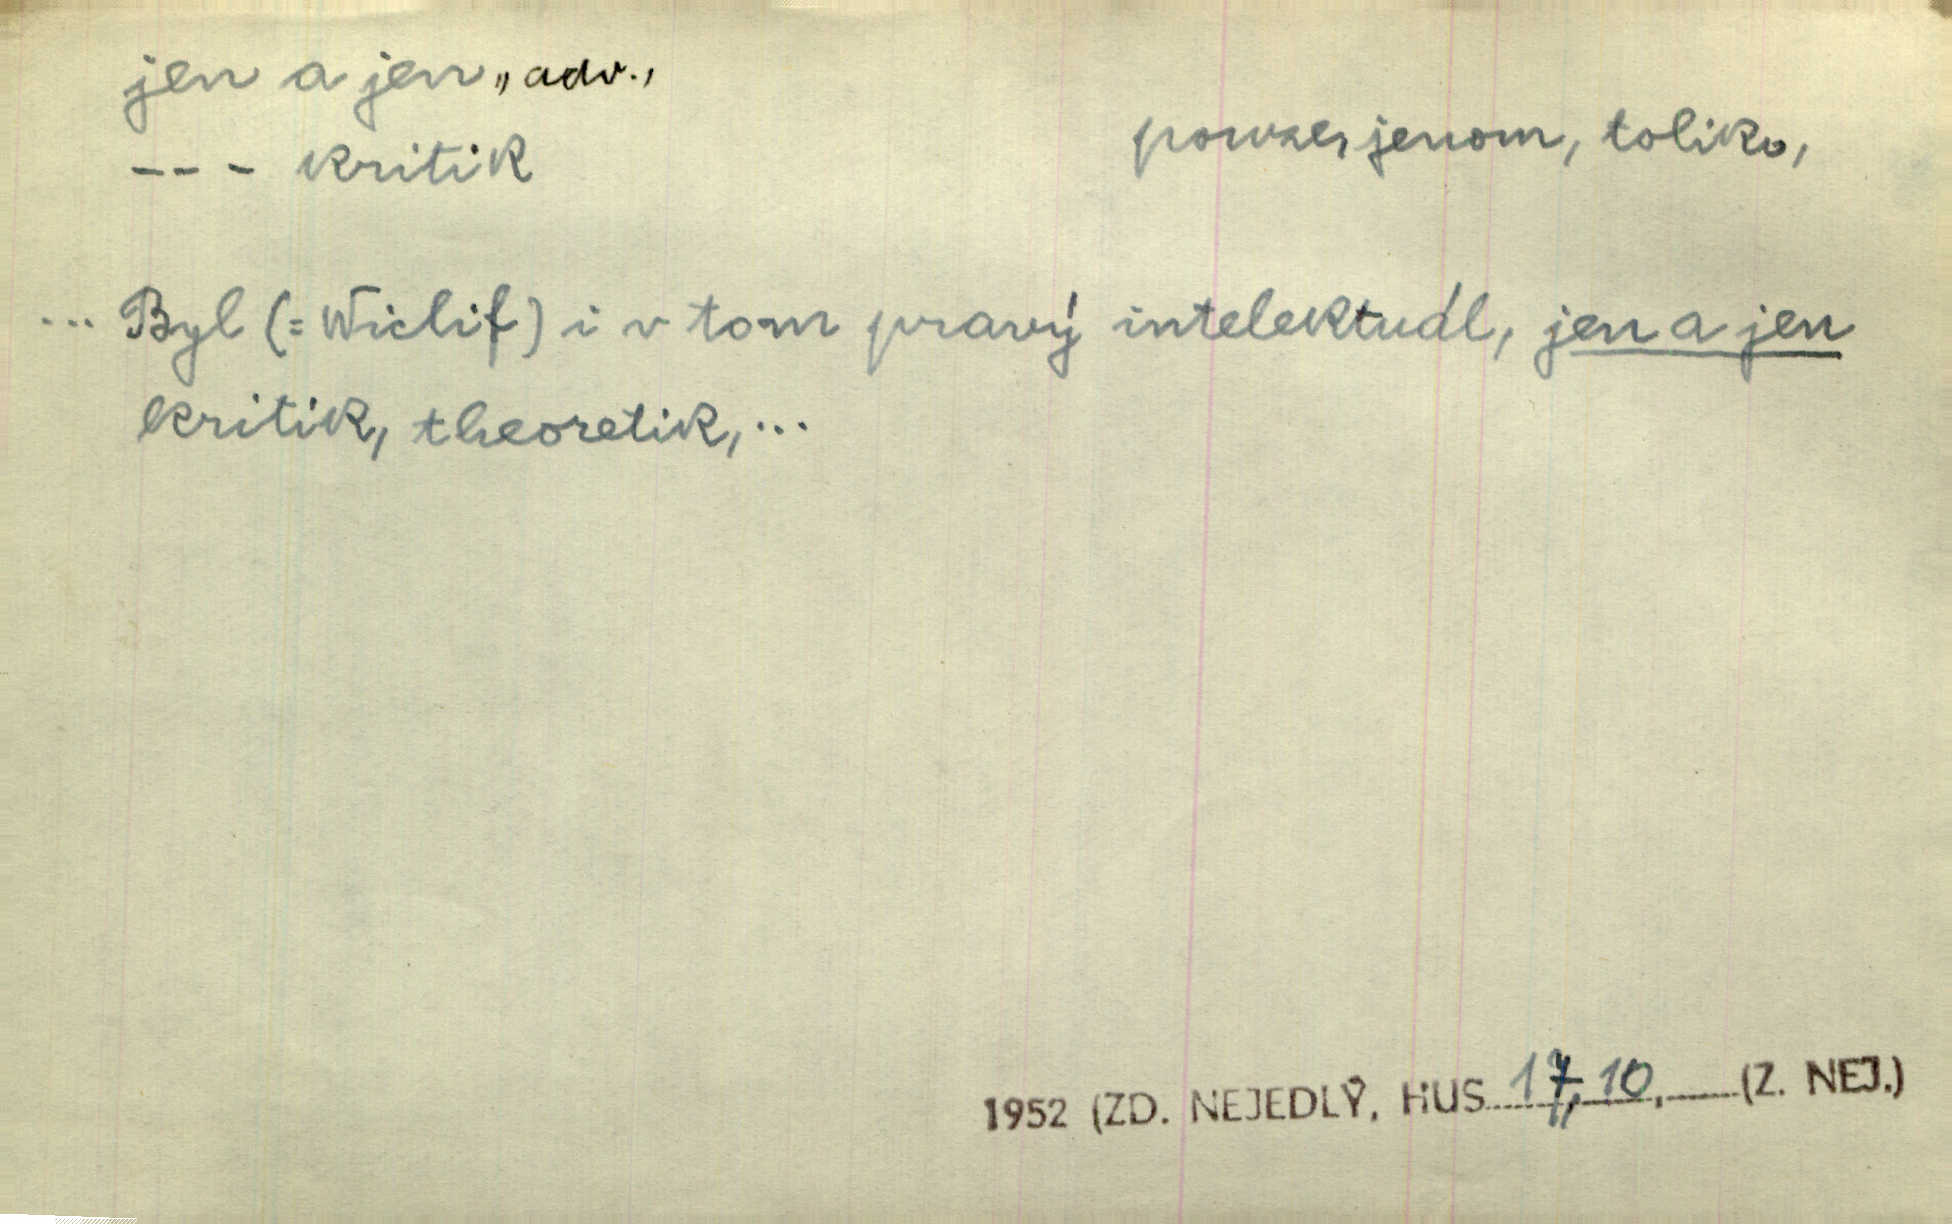 jen a jen,, adv.,
--- kritik
pouze, jenom, toliko,
... Byl (= Wiclif) i v tom pravý intelektuál, jen a jen
kritik, theoretik, ...
1952 (ZD. NEJEDLÝ, HUS 17, 10, (Z. NEJ.)